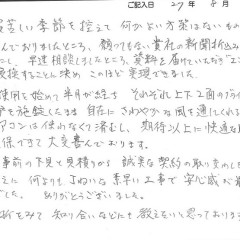 ご記入日 27年 8月
苦しい季節を控えて 何かよい方策はないもの
んでおりましたところ、偶々もらい貴社の新聞折込み
にし、早速相談しましたところ、資料を届けていただき「エ
換することに決め このほど実現できました。
使用を始めて半月が経ち それぞれ上下2面の
を施錠したまま 自在に さわやかな風を通してくれる
アコンは使わなくて済むし、期待以上に快適な
保できて 大変喜んでおります。
事前の下見と見積りから 誠実な契約の取り交わしを
えに 何よりも ていねいな 素早い工事で 安心感が
した。 ありがとうございました。
折をみて 知り合いなどにも 教えたいと思っており